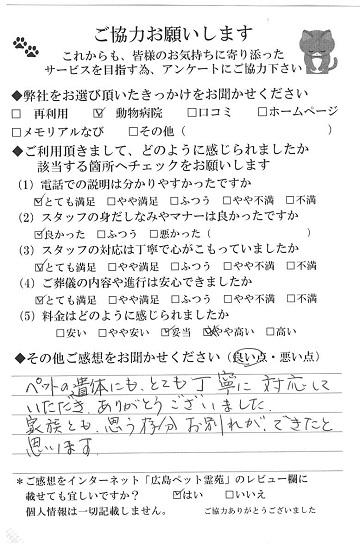 ご協力お願いします
これからも、皆様のお気持ちに寄り添った
サービスを目指す為、アンケートにご協力下さい
◆弊社をお選び頂いたきっかけをお聞かせください
□ 再利用 ☑ 動物病院 □口コミ □ホームページ
□メモリアルなび □その他（ ）
◆ご利用頂きまして、どのように感じられましたか
該当する箇所へチェックをお願いします
(1) 電話での説明は分かりやすかったですか
☑とても満足 □やや満足 □ふつう □やや不満 □不満
(2) スタッフの身だしなみやマナーは良かったですか
☑良かった □ふつう □悪かった（ ）
(3) スタッフの対応は丁寧で心がこもっていましたか
☑とても満足 □やや満足 □ふつう □やや不満 □不満
(4) ご葬儀の内容や進行は安心できましたか
☑とても満足 □やや満足 □ふつう □やや不満 □不満
(5) 料金はどのように感じられましたか
□安い □やや安い ☑妥当 ☑やや高い □高い
◆その他ご感想をお聞かせください（良い点・悪い点）
ペットの遺体にも、とても丁寧に対応して
いただき、ありがとうございました。
家族とも、思う存分お別れが、できたと
思います。
＊ご感想をインターネット「広島ペット霊苑」のレビュー欄に
載せても宜しいですか？ ☑はい □いいえ
個人情報は一切記載しません。 ご協力ありがとうございました